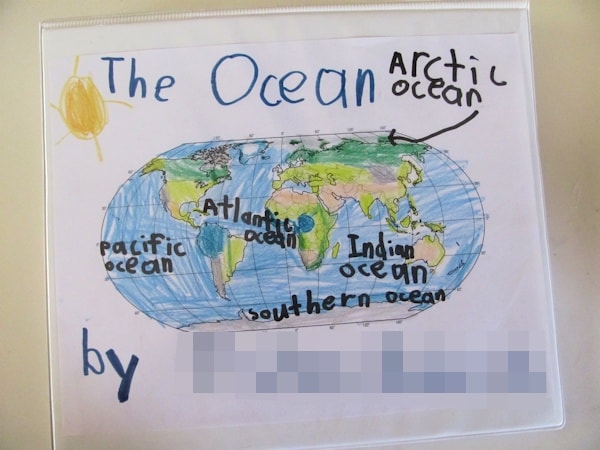 The Ocean
Arctic
ocean
Atlantic
ocean
pacific
ocean
Indian
ocean
southern ocean
by